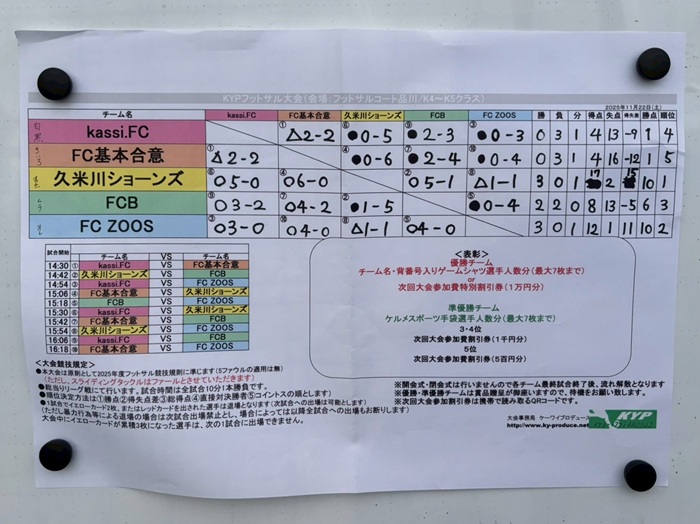 KYPフットサル大会(会場:フットサルコート品川/K4～K5クラス)
2025年11月22日(土)
チーム名 kassi.FC FC基本合意 久米川ショーンズ FCB FC ZOOS 勝 負 分 得点 失点 得失差 勝点 順位
kassi.FC ① △2-2 ⑥ ●0-5 ⑨ ●2-3 ③ ●0-3 0 3 1 4 13 -9 1 4
FC基本合意 ① △2-2 ④ ●0-6 ⑦ ●2-4 ⑩ ●0-4 0 3 1 4 16 -12 1 5
久米川ショーンズ ⑥ ○5-0 ④ ○6-0 ② ○5-1 ⑧ △1-1 3 0 1 17 2 15 10 1
FCB ⑨ ○3-2 ⑦ ○4-2 ② ●1-5 ⑤ ●0-4 2 2 0 8 13 -5 6 3
FC ZOOS ③ ○3-0 ⑩ ○4-0 ⑧ △1-1 ⑤ ○4-0 3 0 1 12 1 11 10 2
試合開始 チーム名 VS チーム名
14:30 ① kassi.FC VS FC基本合意
14:42 ② 久米川ショーンズ VS FCB
14:54 ③ kassi.FC VS FC ZOOS
15:06 ④ FC基本合意 VS 久米川ショーンズ
15:18 ⑤ FCB VS FC ZOOS
15:30 ⑥ kassi.FC VS 久米川ショーンズ
15:42 ⑦ FC基本合意 VS FCB
15:54 ⑧ 久米川ショーンズ VS FC ZOOS
16:06 ⑨ kassi.FC VS FCB
16:18 ⑩ FC基本合意 VS FC ZOOS
<表彰>
優勝チーム
チーム名・背番号入りゲームシャツ選手人数分(最大7枚まで)
or
次回大会参加費特別割引券(1万円分)
準優勝チーム
ケルメスポーツ手袋選手人数分(最大7枚まで)
3・4位
次回大会参加費割引券(1千円分)
5位
次回大会参加費割引券(5百円分)
<大会競技規定>
●本大会は原則として2025年度フットサル競技規則に準じます(5ファウルの適用は無)
(ただし、スライディングタックルはファールとさせていただきます)
●総当りリーグ戦にて行います。試合時間は全試合10分1本勝負です。
●順位決定方法は①勝点②得失点差③総得点④直接対決勝者⑤コイントスの順とします)
●1試合でイエローカード2枚、またはレッドカードを出された選手は退場となります(次試合への出場は可能とします)
(ただし暴力行為等による退場の場合は次試合出場禁止とし、場合によっては以降全試合への出場もお断りします)
大会中にイエローカードが累積3枚になった選手は、次の1試合に出場できません。
※開会式・閉会式は行いませんので各チーム最終試合終了後、流れ解散となります
※優勝・準優勝チームは賞品贈呈が御座いますので、待機をお願い致します。
※次回大会参加割引券は携帯で読み取るQRコードです。
大会事務局 ケーワイプロデュース
http://www.ky-produce.net
KYP